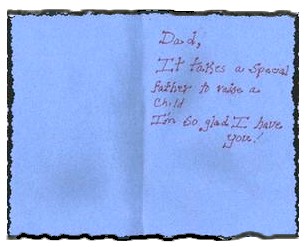 Dad,
It takes a special
father to raise a
child
I'm so glad I have
you!